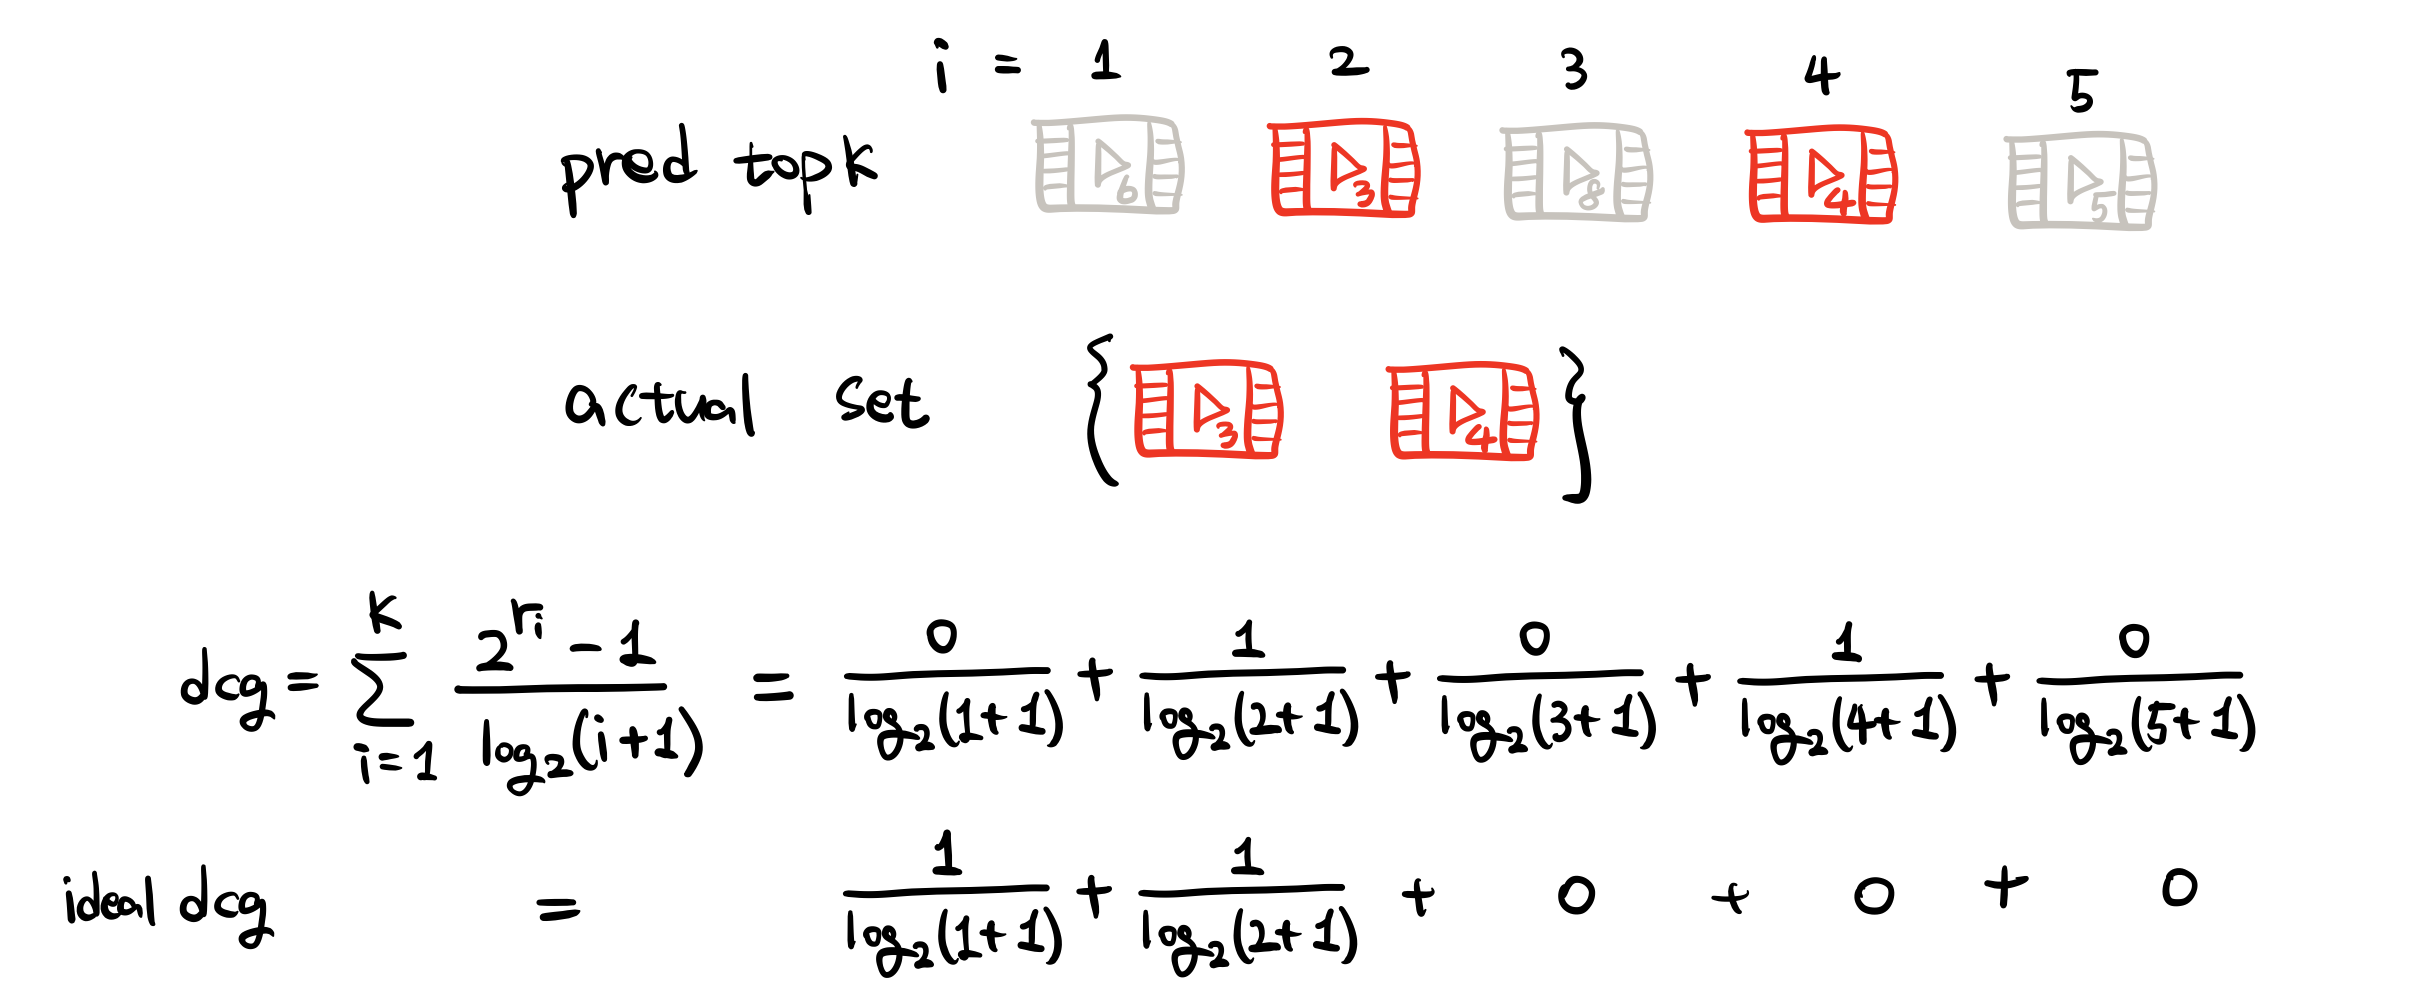 i = 1 2 3 4 5
pred topk 6 3 8 4 5
actual set { 3 4 }
dcg = ∑_{i=1}^{K} (2^{r_i} - 1)/(log₂(i+1)) = 0/(log₂(1+1)) + 1/(log₂(2+1)) + 0/(log₂(3+1)) + 1/(log₂(4+1)) + 0/(log₂(5+1))
ideal dcg = 1/(log₂(1+1)) + 1/(log₂(2+1)) + 0 + 0 + 0